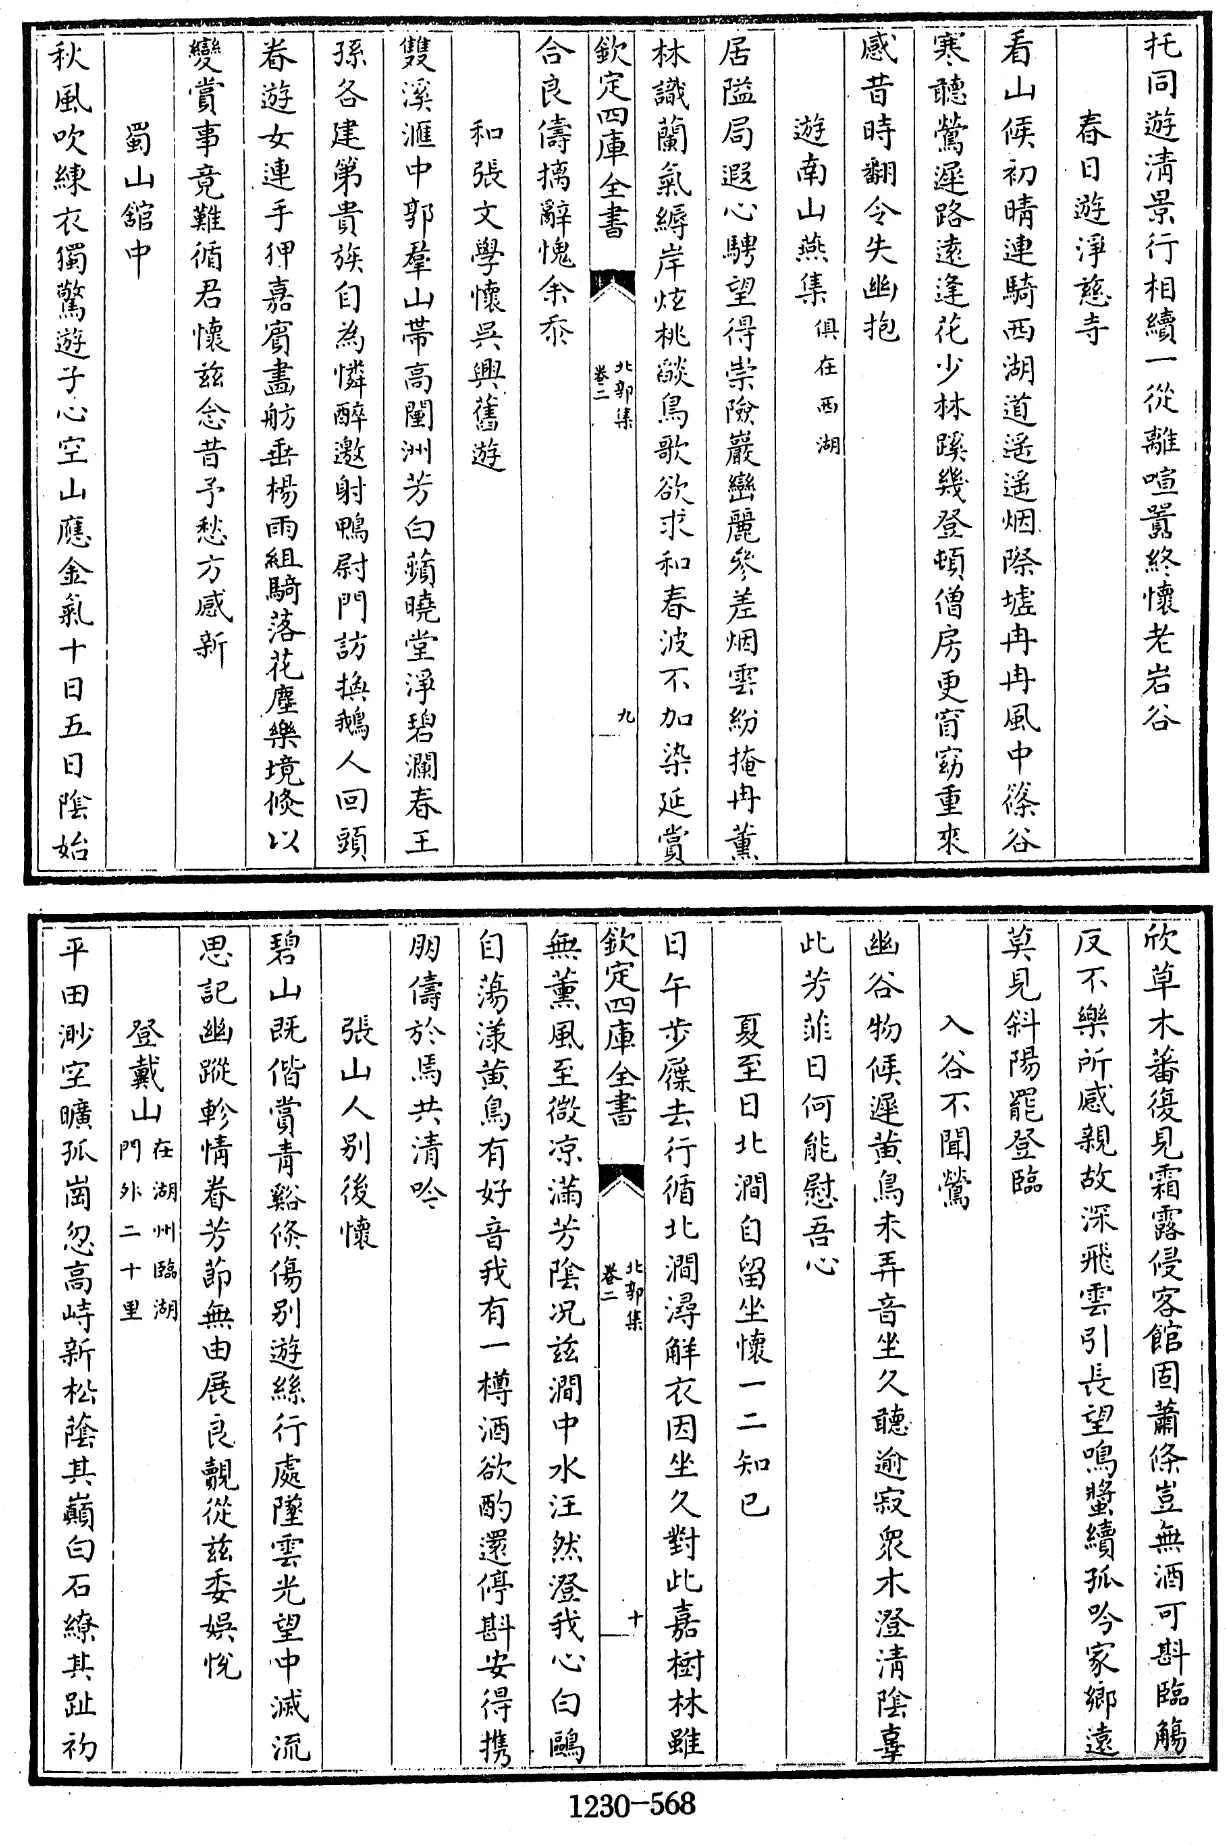 托同遊清景行相續一從離喧囂終懷老岩谷
春日遊淨慈寺
看山候初晴連騎西湖道遥遥烟際墟冉冉風中篠谷
寒聽鶯遲路遠逢花少林蹊幾登頓僧房更窅窈重來
感昔時翻令失幽抱
遊南山燕集俱在西湖
居隘局遐心騁望得崇險巖巒麗參差烟雲紛掩冉薰
林識蘭氣縟岸炫桃燄鳥歌欲求和春波不加染延賞
欽定四庫全書
北郭集
卷二
九
合良儔摛辭愧余忝
和張文學懷吳興舊遊
雙溪滙中郭羣山帶高闉洲芳白蘋曉堂淨碧瀾春王
孫各建第貴族自為憐醉邀射鴨尉門訪換鵝人回頭
眷遊女連手狎嘉賓畫舫垂楊雨組騎落花塵樂境倏以
變賞事竟難循君懷兹念昔予愁方感新
蜀山舘中
秋風吹練衣獨驚遊子心空山應金氣十日五日陰始
欣草木蕃復見霜露侵客館固蕭條豈無酒可斟臨觴
反不樂所感親故深飛雲引長望鳴螿續孤吟家鄉遠
莫見斜陽罷登臨
入谷不聞鶯
幽谷物候遲黄鳥未弄音坐久聽逾寂衆木澄清陰辜
此芳菲日何能慰吾心
夏至日北澗自留坐懷一二知已
日午步屧去行循北澗潯解衣因坐久對此嘉樹林雖
欽定四庫全書
北郭集
卷二
十
無薰風至微凉滿芳陰况兹澗中水汪然澄我心白鷗
自蕩漾黄鳥有好音我有一樽酒欲酌還停斟安得攜
朋儔於焉共清吟
張山人别後懷
碧山既偕賞青谿倏傷别遊絲行處墜雲光望中滅流
思記幽蹤軫情眷芳節無由展良覿從兹委娛悅
登戴山在湖州臨湖
門外二十里
平田渺空曠孤崗忽高峙新松蔭其巔白石繚其趾初
1230-568